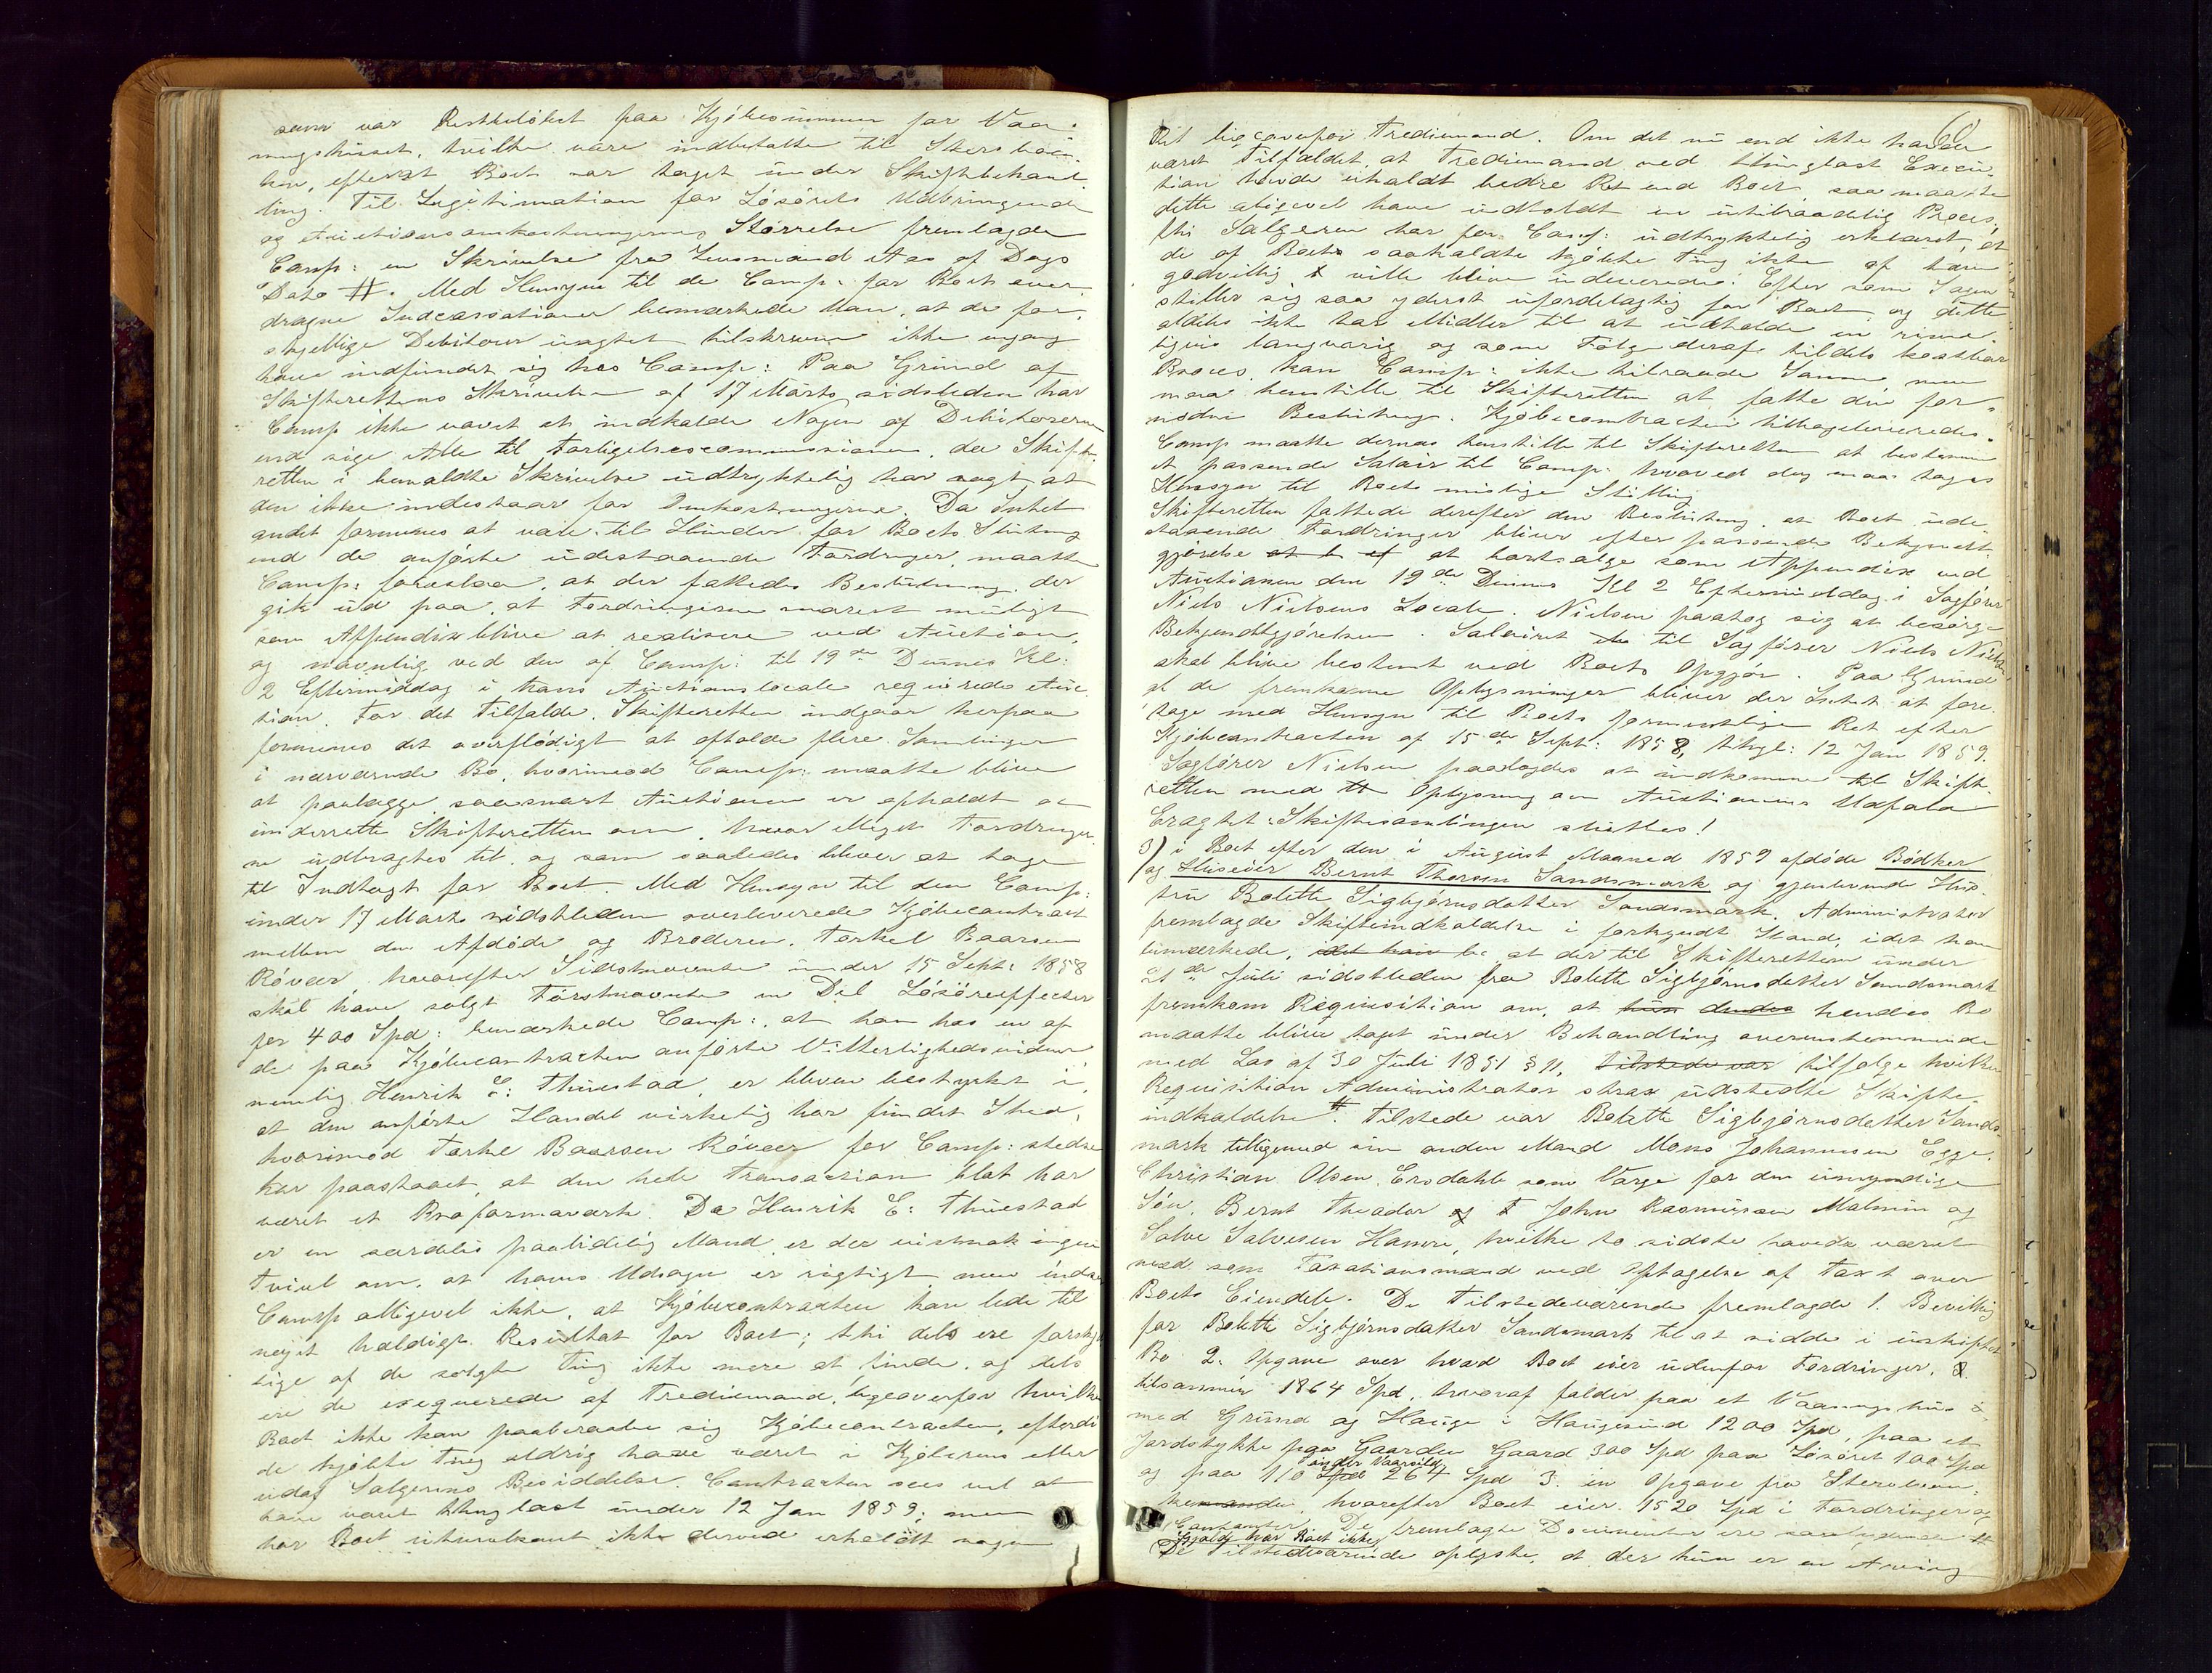 som var Restbeløbet paa Kjøbesummen for Vaa-
ningshuset, hvilke vare indbetalte til Stervbo-
en, efterat Boet var taget under Skiftebehand-
ling. Til Legitimation for Løsørets Udbringende
og Auctionsomkostningernes Størrelse fremlagde
Comp: en Skrivelse fra Lensmand Aas af Dags
Dato #. Med Hensyn til de Comp: for Boet over-
dragne Indcassationer bemærkede han, at de for-
skjellige Debitorer uagtet tilskrevne ikke engang
have indfundet sig hos Comp: Paa Grund af
Skifterettens Skrivelse af 17 Marts sidstleden har
Comp ikke vovet at indkalde Nogen af Debitorerne
end sige Alle til Forligelsescommissionen, da Skifte-
retten i bemeldte Skrivelse udtrykkelig har sagt, at
den ikke indestaar for Omkostningerne. Da Intet
andet formenes at være til Hinder for Boets Slutning
end de anførte udestaaende Fordringer, maatte
Comp: foreslaa, at der fattedes Beslutning, der
gik ud paa, at Fordringerne snarest muligt
som Appendix blive at realisere ved Auction,
og navnlig ved den af Comp: til 19de Dennes Kl:
2 Eftermiddag i hans Auctionslocale requirerede Auc-
tion. For det Tilfælde, Skifteretten indgaar herpaa
formenes det overflødigt at afholde flere Samlinger
i nærværende Bo, hvorimod Comp: maatte blive
at paalægge, saasnart Auctionen er afholdt at
underrette Skifteretten om, hvor Meget Fordringer-
ne udbragtes til, og som saaledes bliver at tage
til Indtægt for Boet. Med Hensyn til den Comp:
under 17 Marts sidstleden overleverede Kjøbecontract
mellem den Afdøde og Broderen, Torkel Baarsen
Røvær, hvorefter Sidstnævnte under 15 Sept: 1858
skal have solgt Førstnævnte en Del Løsøreeffecter
for 400 Spd: bemærkede Comp:, at han hos en af
de paa Kjøbecontracten anførte Vitterlighedsvidner
nemlig Henrik E: Thuestad, er bleven bestyrket i
at den anførte Handel virkelig har fundet Sted,
hvorimod Torkel Baarsen Røvær for Comp: stedse
har paastaaet, at den hele Transaction blot har
været et Proformaværk. Da Henrik E: Thuestad
er en særdeles paalidelig Mand, er der vistnok ingen
Tvivl om, at hans Udsagn er rigtigt men indse
Comp alligevel ikke, at Kjøbecontracten kan lede til
noget heldigt Resultat for Boet; thi dels ere forskjel-
lige af de solgte Ting ikke mere at finde, og dels
ere de exeqverede af Trediemand, ligeoverfor hvilken
Boet ikke kan paaberaabe sig Kjøbecontracten, efterdi
de kjøbte Ting aldrig have været i Kjøberens eller
udaf Sælgerens Besiddelse. Contracten sees vel at
have været thinglæst under 12 Jan 1859; men
har Boet utvivlsomt ikke derved erholdt nogen
60
Ret ligeoverfor Trediemand. Om det nu end ikke havde
været Tilfældet, at Trediemand ved thinglæst Execu-
tion havde erholdt bedre Ret end Boet saa maatte
dette aligevel have undholdt en utilraadelig Proces,
thi Sælgeren har for Comp: udtrykkelig erklæret, at
de af Boets saakaldte kjøbte Ting ikke af ham
godvillig t ville blive indeverede. Efter som Sagen
stiller sig saa yderst ufordelagtig for Boet, og dette
aldeles ikke har Midler til at udholde en rime-
ligvis langvarig og som Følge deraf tildels kostbar
Proces kan Comp: ikke tilraade Samme, men
maa henstille til Skifteretten at fatte den for-
nødne Beslutning. Kjøbecontracten tilbageleveredes.
Comp maatte dernæst henstille til Skifteretten at bestemme
et passende Salair til Comp: hvorved dog maa tages
Hensyn til Boets mislige Stilling
Skifteretten fattede derefter den Beslutning, at Boet ude-
staaende Fordringer bliver efter passende Bekjendt-
gjørelse at b ef at bortsælge som Appendix ved
Auctionen den 19de Dennes Kl 2 Eftermiddag i Sagfører
Niels Nielsens Locale. Nielsen paatog sig at besørge
Bekjendtgjørelsen. Salairet til Sagfører Niels Nielsen
skal blive bestemt ved Boets Opgjør. Paa Grund
af de fremkomne Oplysninger bliver der Intet at fore-
tage med Hensyn til Boets formentlige Ret efter
Kjøbecontracten af 15de Sept: 1858, thgl: 12 Jan 1859.
Sagfører Nielsen paalagdes at indkomme til Skifte-
retten med # Oplysning om Auctionens Udfald
Eragtet: Skiftesamlingen sluttes!
3) i Boet efter den i August Maaned 1859 afdøde Bødker
og Huseier Bernt Thorsen Sandsmark og gjenlevende Hus-
tru Bolette Sigbjørnsdatter Sandsmark. Administrator
fremlagde Skifteindkaldelse i forkyndt Stand, idet han
bemærkede, idet han be at der til Skifteretten under
21de Juli sidstleden fra Bolette Sigbjørnsdatter Sandsmark
fremkom Reqvisition om, at hun dendes hendes Bo
maatte blive taget under Behandling overensstemmende
med Lov af 30 Juli 1851 § 11, tilstede var tilfølge hvilken
Requisition Administrator strax udstedte Skifte-
indkaldelse #. Tilstede var Bolette Sigbjørnsdatter Sands-
mark tilligemed sin anden Mand Mons Johannesen Egge.
Christian Olsen Ersdahl som Værge for den umyndige
Søn, Bernt Theodor og T John Rasmussen Malmin og
Salve Salvesen Hamre, hvilke to sidste havde været
med som Taxationsmænd ved Optagelse af Taxt over
Boets Eiendele. De Tilstedeværende fremlagde 1. Bevilling
for Bolette Sigbjørnsdatter Sandsmark til at sidde i uskiftet
Bo 2. Opgave over hvad Boet eier udenfor Fordringer,
tilsammen 1864 Spd, hvoraf falder paa et Vaaningshus
med Grund og Hauge i Haugesund 1200 Spd, paa et
Jordstykke paa Gaarden Gaard 300 Spd paa Løsøret 100 Spd
og paa 110 Spd 264 Spd 3. en Opgave fra Stervboen-
ken, hvorefter Boet eier 1520 Spd i Fordringer og
Contanter. De fremlagte Documenter ere saalydende #
Gjæld har Boet ikke
De Tilstedeværende oplyste, at der kun er en Arving